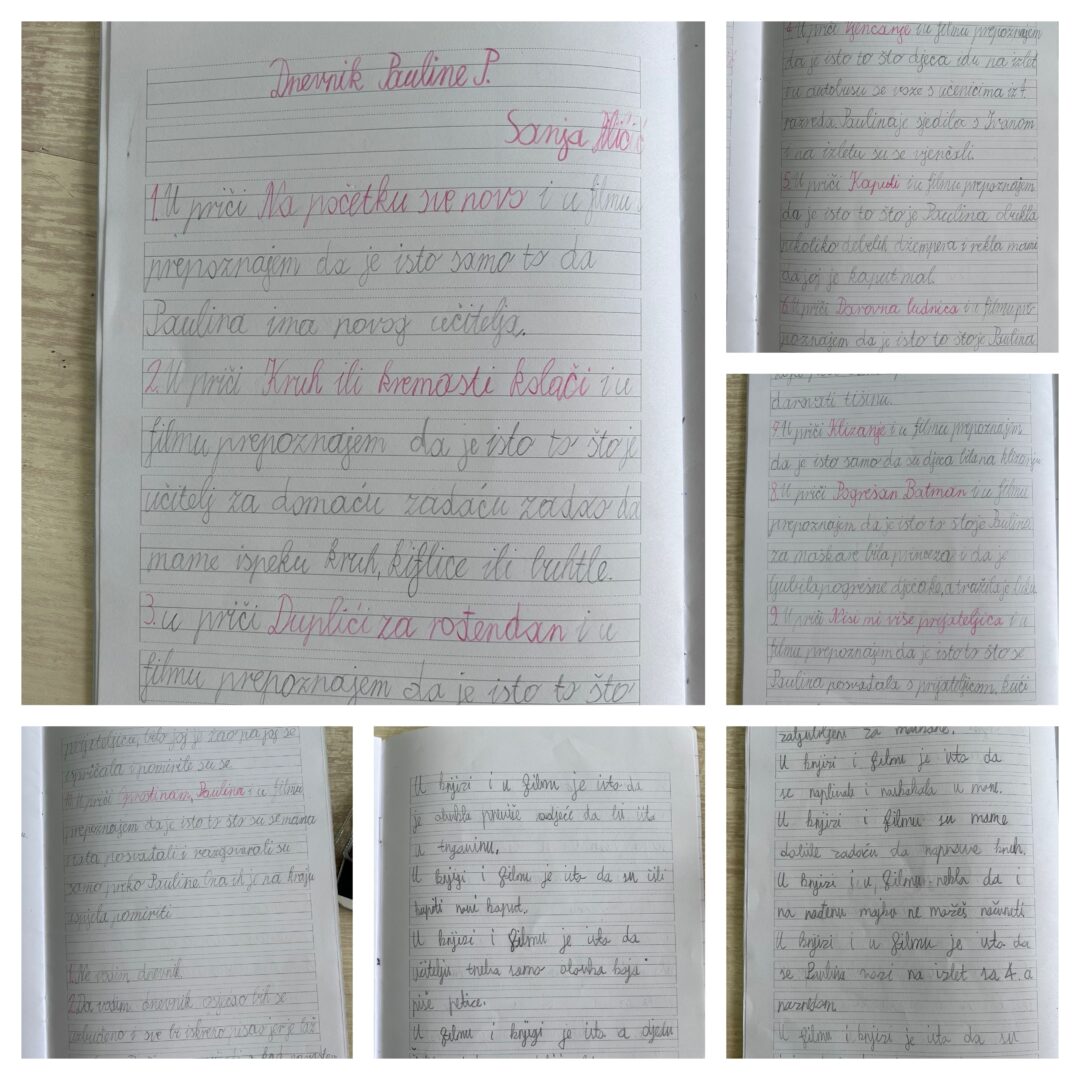 Dnevnik Pauline P.
Sanja Pilić
1. U priči Na početku sve novo i u filmu
prepoznajem da je isto samo to da
Paulina ima novog učitelja.
2. U priči Kruh ili kremasti kolači i u
filmu prepoznajem da je isto to što je
učitelj za domaću zadaću zadao da
mame ispeku kruh, kiflice ili buhtle.
3. u priči Duplići za rođendan i u
filmu prepoznajem da je isto to što
4. U priči Vjenčanje i u filmu prepoznajem
da je isto to što djeca idu na izlet
u autobusu se voze s učenicima iz 4.
razreda. Paulina je sjedila s Ivanom
i na izletu su se vjenčali.
5. U priči Kaputi i u filmu prepoznajem
da je isto to što je Paulina obukla
nekoliko debelih džempera i rekla mami
da joj je kaput mal.
6. U priči Darovna ludnica i u filmu pre-
poznajem da je isto to što je Paulina
darovati tišinu.
7. U priči Klizanje i u filmu prepoznajem
da je isto samo da su djeca bila na klizanju
8. U priči Pogrešan Batman i u filmu
prepoznajem da je isto to što je Paulina
za maskare bila princeza i da je
ljubila pogrešne dječake, a tražila je Luku.
9. U priči Nisi mi više prijateljica i u
filmu prepoznajem da je isto to što se
Paulina posvađala s prijateljicom, kući
prijateljica, bilo joj je žao pa joj se
ispričala i pomirile su se
10. U priči Oprosti nam, Paulina i u filmu
prepoznajem da je isto to što su se mama
i tata posvađali i razgovarali su
samo preko Pauline. Ona ih je na kraju
uspjela pomiriti
1. Ne vodim dnevnik.
2. Da vodim dnevnik osjećao bih se
uzbuđeno i sve bi iskreno pisao jer je to
U knjizi i u filmu je isto da
je obukla previše odjeće da bi išla
u trgovinu.
U knjizi i filmu je isto da su išli
kupiti novi kaput.
U knjizi i filmu je isto da
učitelju treba samo olovka koja
piše petice.
U filmu i knjigi je isto a djecu
zaljubljeni za maškare.
U knjizi i filmu je isto da
se naplivali i naskakala u more.
U knjizi i filmu su mame
dobile zadaću da naprave kruh.
U knjizi i u filmu rekla da i
na rođenu majku ne možeš računati
U knjizi i u filmu je isto da
se Paulina vozi na izlet sa 4. a
razredom
U filmu i knjizi je isto da su